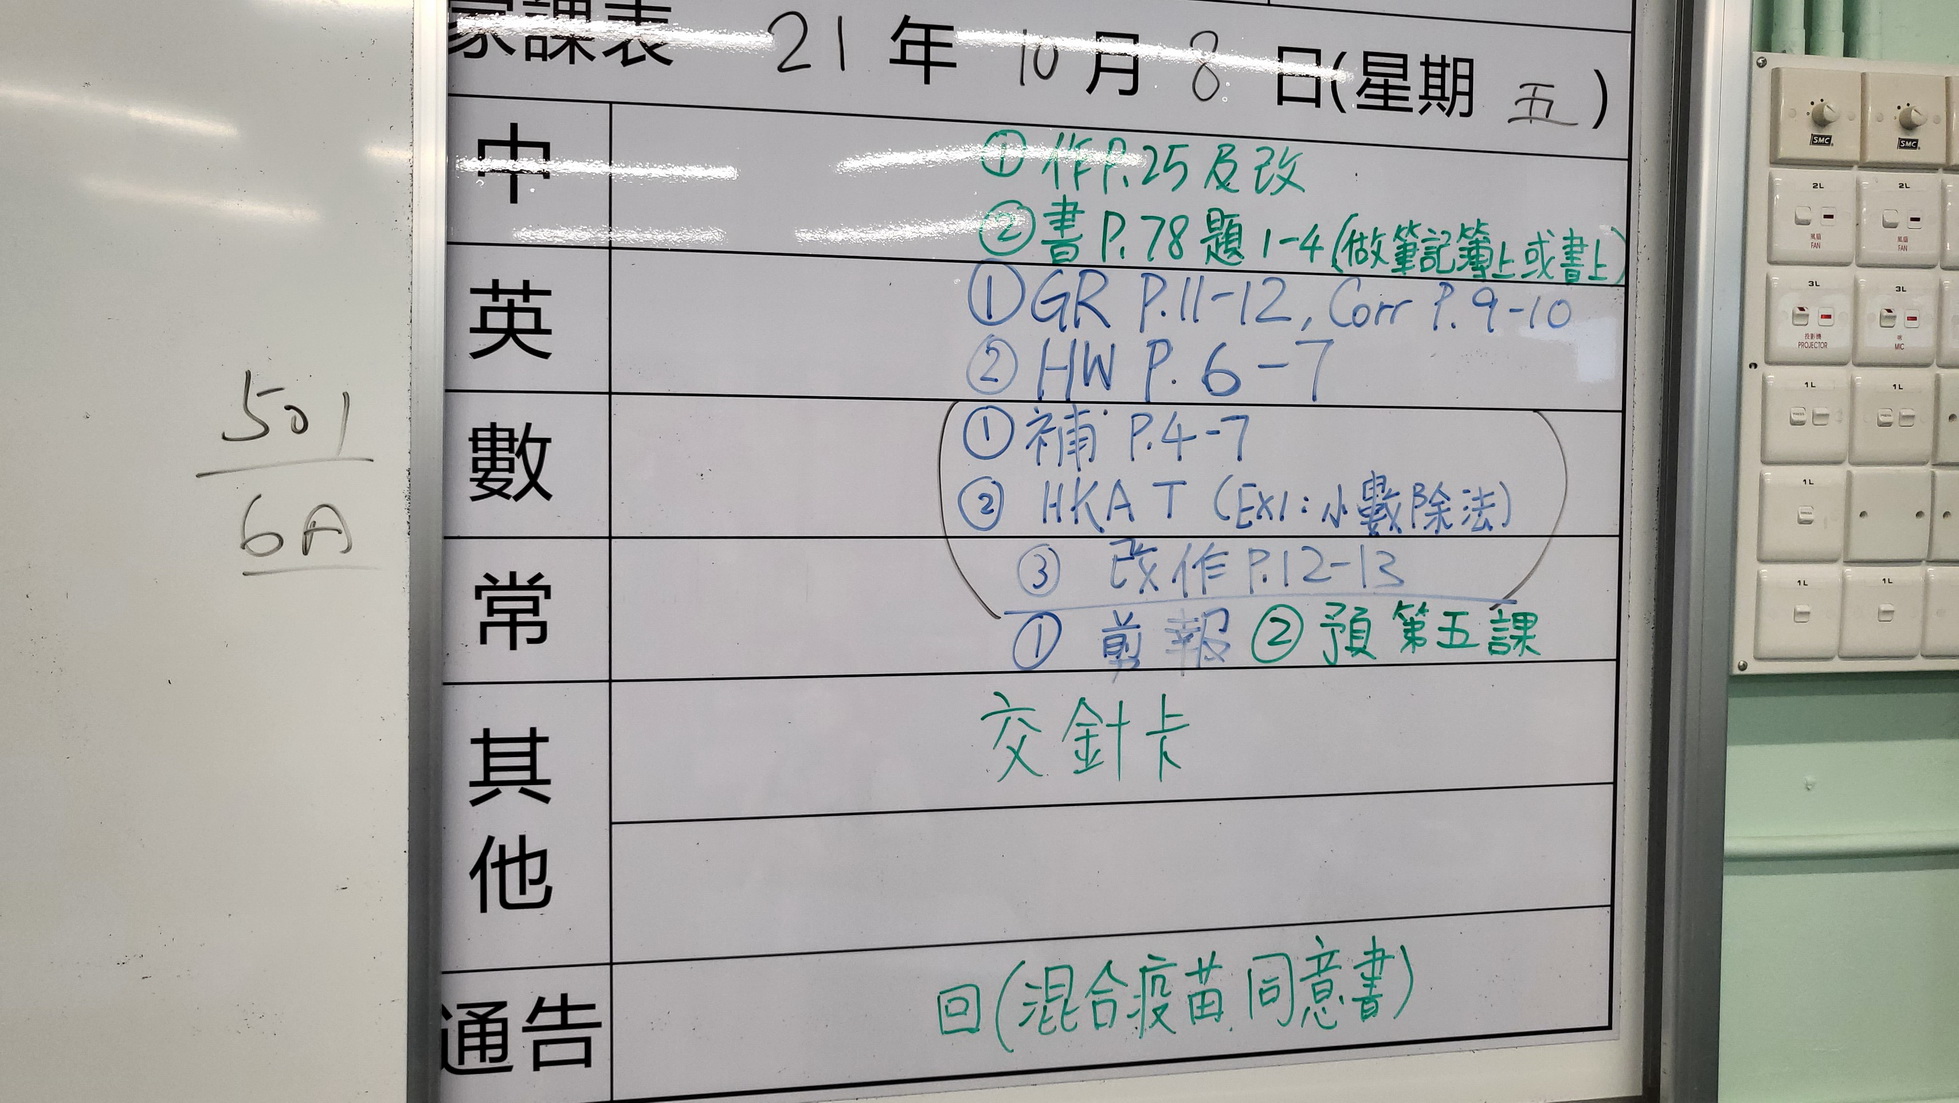 家課表 21 年 10 月 8 日(星期 五)
中
① 作P.25及改
② 書 P.78 題 1-4 (做筆記簿上或書上)
英
① GR P.11-12, Corr P.9-10
② HW P. 6-7
數
① 補 P.4-7
② HKAT (Ex1:小數除法)
③ 改作 P.12-13
常
① 剪報 ② 預 第五課
其他
交針卡
通告
回(混合疫苗同意書)
501
6A
SMC
SMC
2L
2L
風扇
FAN
風扇
FAN
3L
3L
投影機
PROJECTOR
咪
MIC
1L
1L
1L
1L
1L